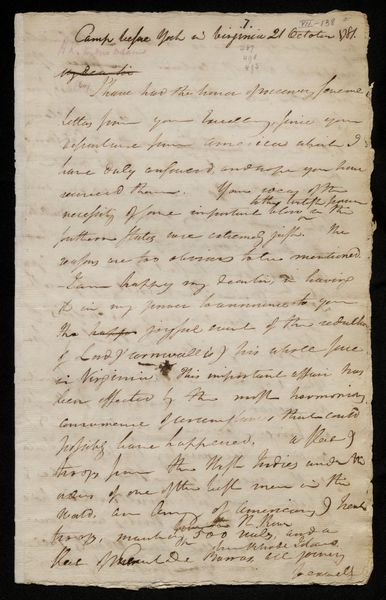 7.
VII-138
Camp before York in Virginia 21 October 1781.
287
My dear Sir
I have had the honor of receiving several
letters from your Excellency, since your
departure from america which I
have duly answered, and hope you have
received them. Your ideas of the
necessity of some important blow in the
southern States were extremely just. The
reasons are too obvious to be mentioned.
I am happy my dear Sir, in having
it in my power to announce to you
the happy joyfull event of the reduction
of Lord Cornwallis & his whole force
in Virginia. This important affair has
been effected by the most harmonious
concurrence of circumstances that could
possibly have happened. a fleet &
troops from the West Indies under the
orders of one of the best men in the
World, an army of American & French
troops, marching
from the North River
500 miles, and a
fleet of Count de Barras all joining
from Rhode Island